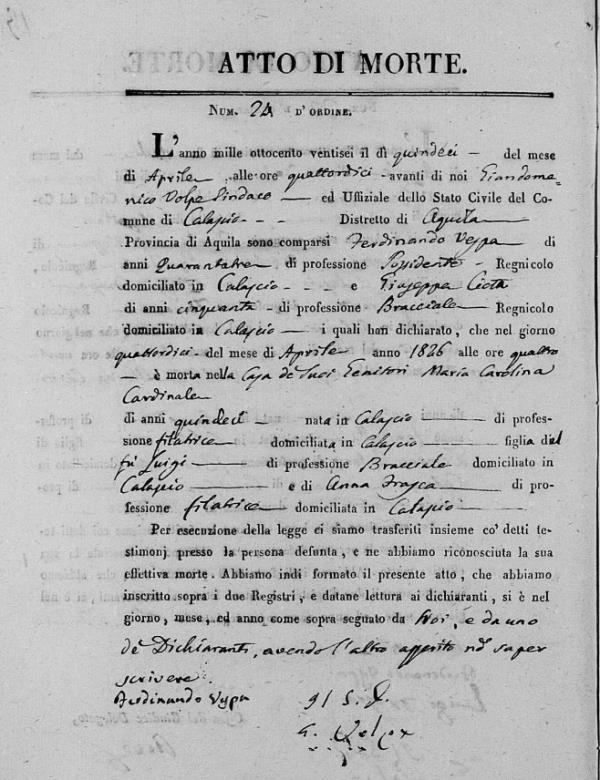 ATTO DI MORTE.
NUM. 24 D'ORDINE.
L'anno mille ottocento ventisei il dì quindeci — del mese
di Aprile, alle ore quattordici - avanti di noi Giandome-
nico Volpe Sindaco — ed Uffiziale dello Stato Civile del Co-
mune di Calascio - - - Distretto di Aquila
Provincia di Aquila sono comparsi Ferdinando Vespa di
anni Quarantatre di professione Possidente - Regnicolo
domiciliato in Calascio — e Giuseppe Ciota
di anni cinquanta - di professione Bracciale Regnicolo
domiciliato in Calascio — i quali han dichiarato, che nel giorno
quattordici - del mese di Aprile anno 1826 alle ore quattro
— è morta nella Casa de suoi Genitori Maria Carolina
Cardinale
di anni quindeci — nata in Calascio — di profes-
sione filatrice — domiciliata in Calascio — figlia del
fù Luigi — di professione Bracciale domiciliato in
Calascio — e di Anna Frasca — di pro-
fessione filatrice domiciliata in Calascio —
Per esecuzione della legge ci siamo trasferiti insieme co' detti te-
stimonj presso la persona defunta, e ne abbiamo riconosciuta la sua
effettiva morte. Abbiamo indi formato il presente atto, che abbiamo
inscritto sopra i due Registri, e datane lettura ai dichiaranti, si è nel
giorno, mese, ed anno come sopra segnato da Noi, e da uno
dè Dichiaranti, avendo l'altro asserito nō saper
scrivere
Ferdinando Vespa